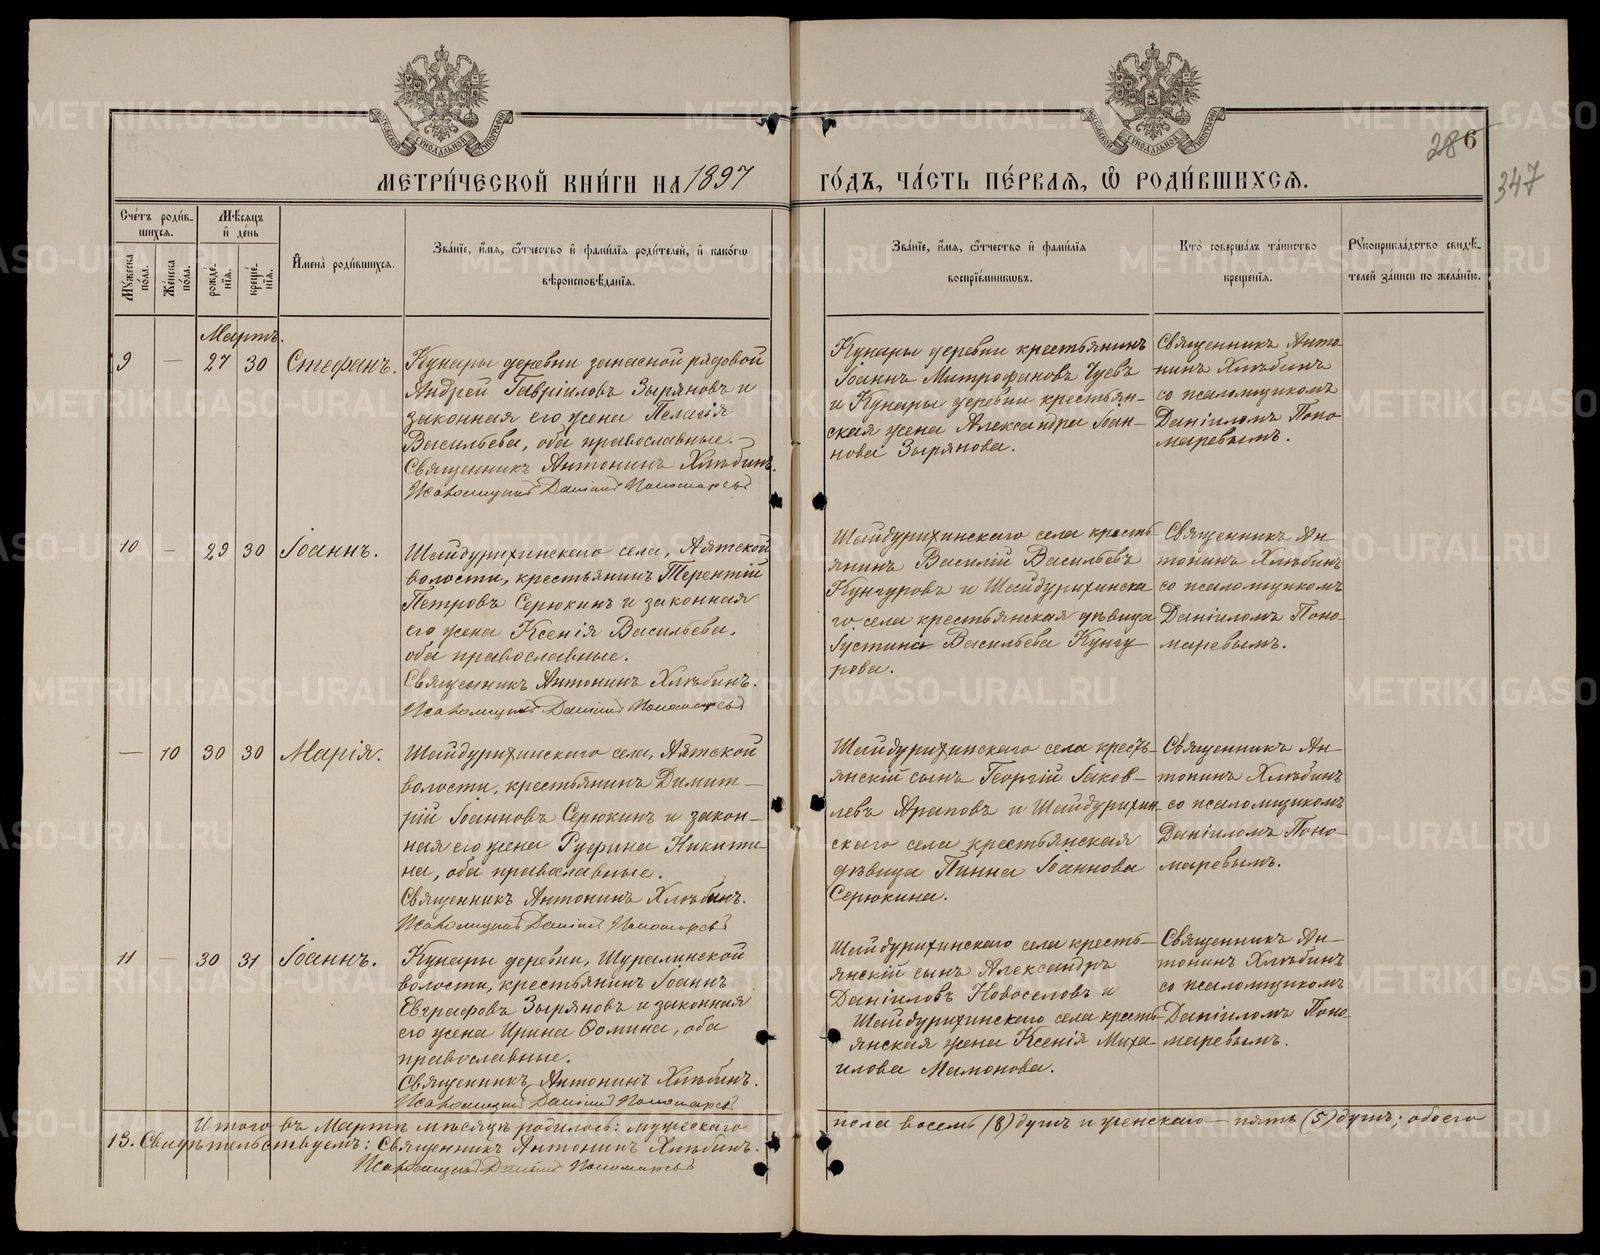 МЕТРИ́ЧЕСКОЙ КНИ́ГИ НА 1897 ГО́ДЪ, ЧА́СТЬ ПЕ́РВАЯ, Ѽ РОДИ́ВШИХСЯ.
286
347
Сче́тъ роди́в-
шихся.
Мѣ́сяцъ
и҆ де́нь
Му́жеска
по́ла.
Же́нска
по́ла.
рожде́-
нія.
креще́-
нія.
И҆мена̀ роди́вшихся.
Зва́ніе, и҆́мя, ѻ҆́тчество и҆ фами́лія роди́телей, и҆ како́гѡ
вѣроисповѣ́данія.
Зва́ніе, и҆́мя, ѻ҆́тчество и҆ фами́лія
воспріе́мниковъ.
Кто̀ соверша́лъ та́инство
креще́нія.
Рукоприкла́дство свидѣ́-
телей за́писи по жела́нію.
Мартъ.
9 — 27 30 Стефанъ.
Кунары деревни запасной рядовой
Андрей Гавріиловъ Зыряновъ и
законная его жена Пелагія
Васильева, оба православные.
Священникъ Антонинъ Хлѣбинъ.
Псаломщикъ Даніилъ Пономаревъ
Кунары деревни крестьянинъ
Іоаннъ Митрофановъ Чуевъ
и Кунары деревни крестьян-
ская жена Александра Іоан-
нова Зырянова.
Священникъ Анто-
нинъ Хлѣбинъ
со псаломщикомъ
Даніиломъ Поно-
маревымъ.
10 — 29 30 Іоаннъ.
Шайдурихинскаго села, Аятской
волости, крестьянинъ Терентій
Петровъ Серюкинъ и законная
его жена Ксенія Васильева,
оба православные.
Священникъ Антонинъ Хлѣбинъ.
Псаломщикъ Даніилъ Пономаревъ
Шайдурихинскаго села кресть-
янинъ Василій Васильевъ
Кунгуровъ и Шайдурихинска
го села крестьянская дѣвица
Іустина Васильева Кунгу-
рова.
Священникъ Ан-
тонинъ Хлѣбинъ
со псаломщикомъ
Даніиломъ Поно-
маревымъ.
— 10 30 30 Марія.
Шайдурихинскаго села, Аятской
волости, крестьянинъ Димит-
рій Іоанновъ Серюкинъ и закон-
ная его жена Руфина Никити-
на, оба православные.
Священникъ Антонинъ Хлѣбинъ.
Псаломщикъ Даніилъ Пономаревъ
Шайдурихинскаго села кресть-
янскій сынъ Георгій Іаков-
левъ Араповъ и Шайдурихин
скаго села крестьянская
дѣвица Пинна Іоаннова
Серюкина.
Священникъ Ан-
тонинъ Хлѣбинъ
со псаломщикомъ
Даніиломъ Поно-
маревымъ.
11 — 30 31 Іоаннъ.
Кунары деревни, Шуралинской
волости, крестьянинъ Іоаннъ
Евграфовъ Зыряновъ и законная
его жена Ирина Ѳомина, оба
православные.
Священникъ Антонинъ Хлѣбинъ.
Псаломщикъ Даніилъ Пономаревъ
Шайдурихинскаго села кресть-
янскій сынъ Александръ
Даніиловъ Новоселовъ и
Шайдурихинскаго села кресть-
янская жена Ксенія Миха-
илова Мамонова.
Священникъ Ан-
тонинъ Хлѣбинъ
со псаломщикомъ
Даніиломъ Поно-
маревымъ.
Итого въ Мартѣ мѣсяцѣ родилось: мужескаго пола восемь (8) душъ и женскаго — пять (5) душъ; обоего
13. Свидѣтельствуемъ: Священникъ Антонинъ Хлѣбинъ.
Псаломщикъ Даніилъ Пономаревъ